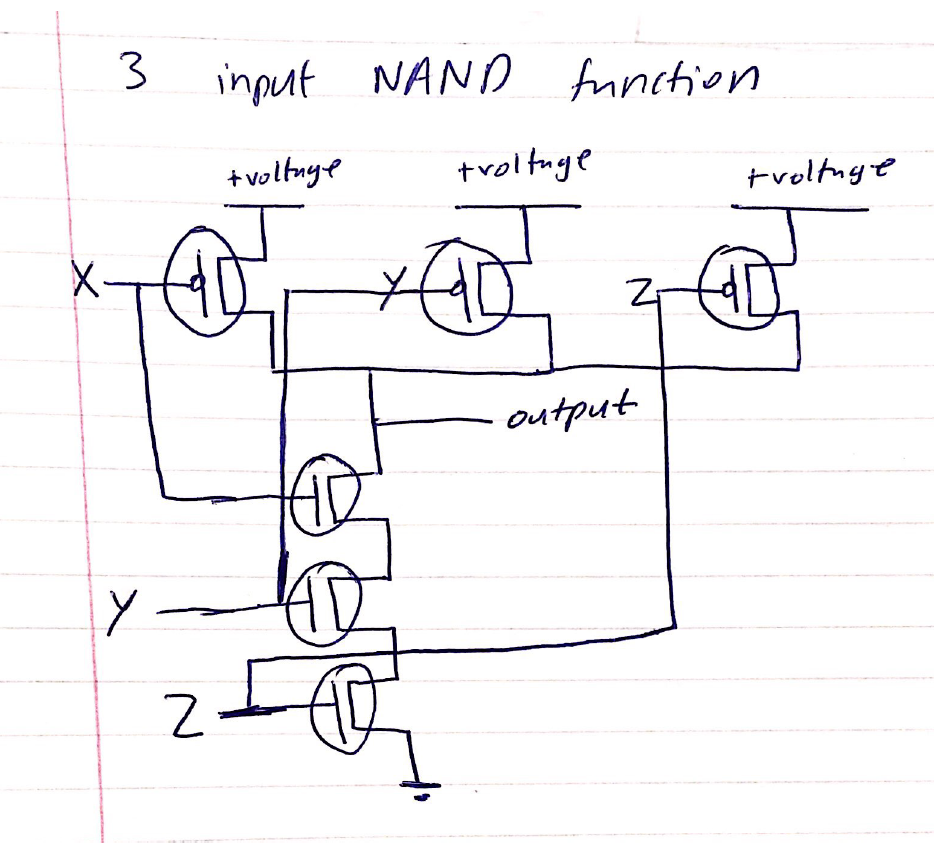 3 input NAND function
+voltage +voltage +voltage
X Y Z
output
Y
Z